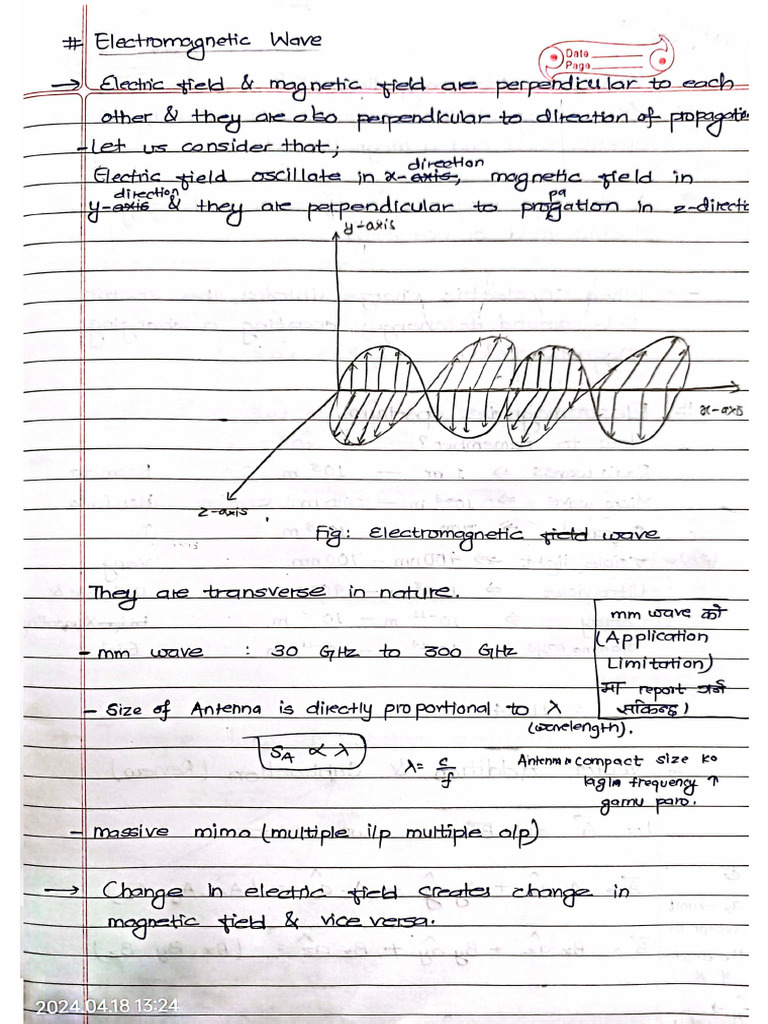 # Electromagnetic Wave
Date
Page
→ Electric field & magnetic field are perpendicular to each
other & they are also perpendicular to direction of propagatio
- Let us consider that;
direction
Electric field oscillate in x-axis, magnetic field in
direction pa
y-axis & they are perpendicular to progation in z-directio
y-axis
x-axis
z-axis
Fig: Electromagnetic field wave
They are transverse in nature.
mm wave को
(Application
Limitation)
मा report गर्न
सकिन्छ।
- mm wave : 30 GHz to 300 GHz
- Size of Antenna is directly proportional to λ
(wavelength).
SA ∝ λ
λ = c/f
Antenna compact size ko
lagin frequency ↑
garnu paro.
- massive mimo (multiple i/p multiple o/p)
→ Change in electric field creates change in
magnetic field & vice versa.
2024.04.18 13:24